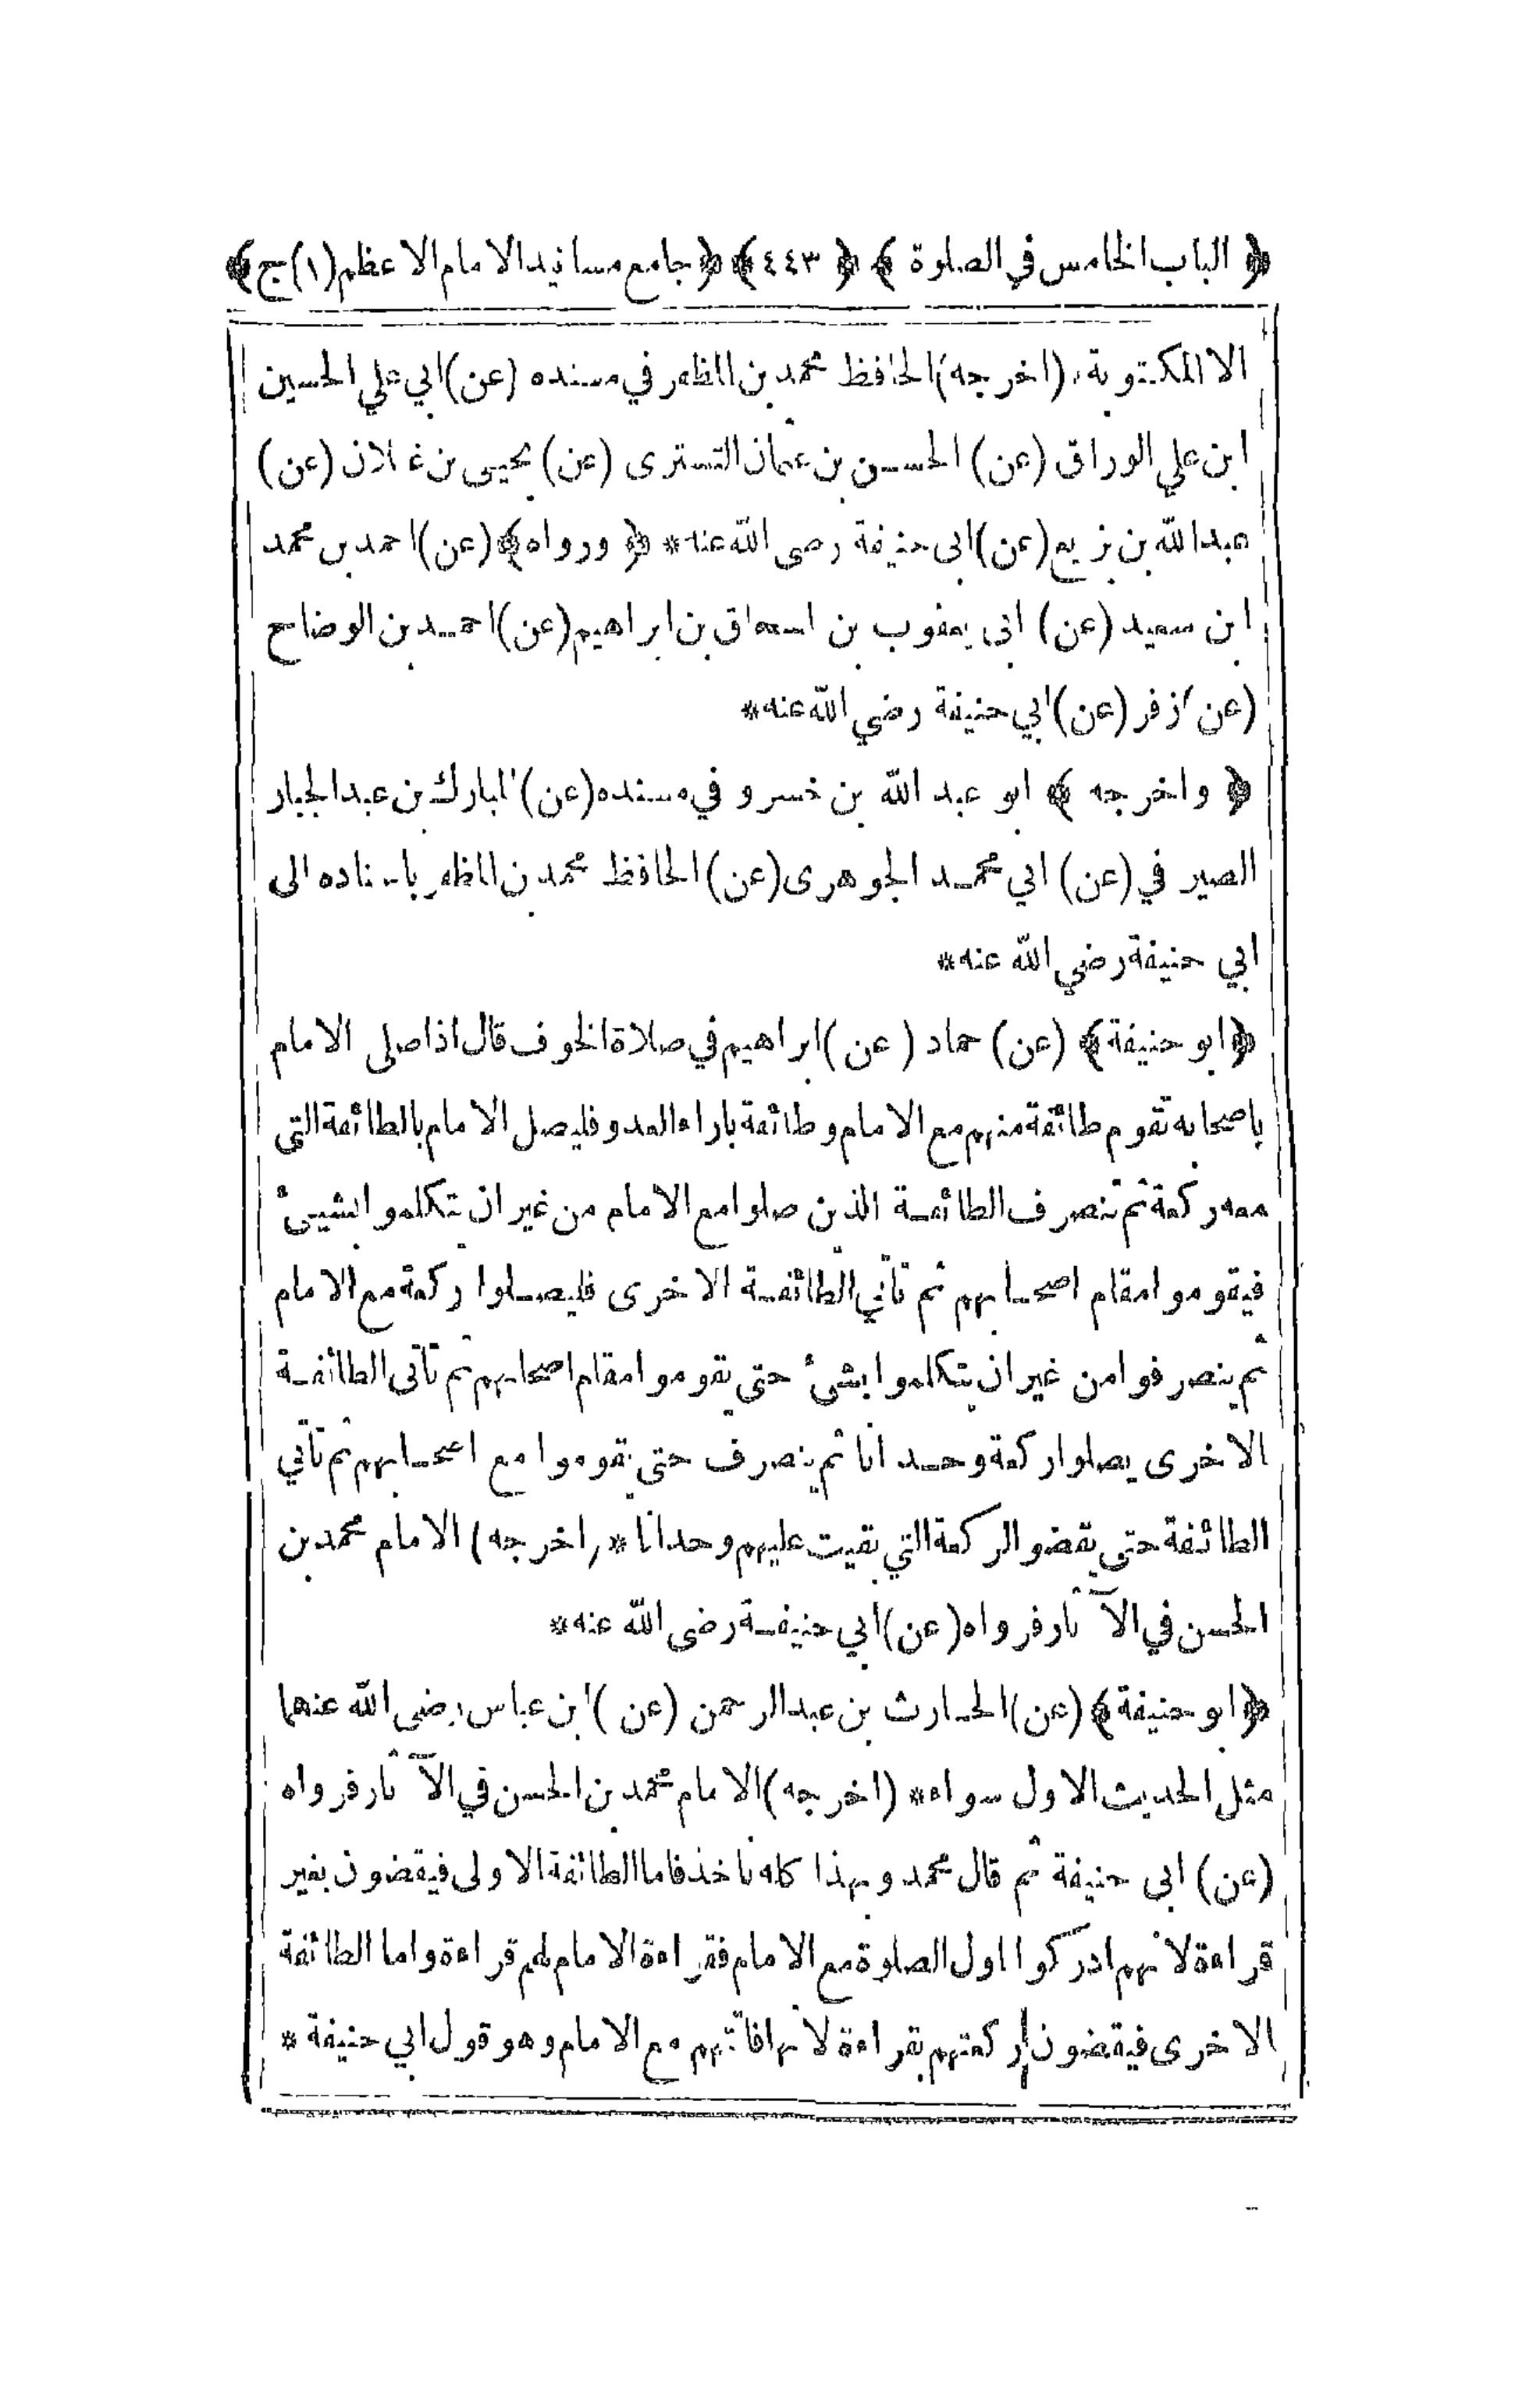 ﴿ الباب الخامس في الصلوة ﴾ ﴿ ٤٤٣ ﴾ ﴿ جامع مسانيد الامام الاعظم (١) ج ﴾
الا المكتوبة * (اخرجه) الحافظ محمد بن المظفر في مسنده (عن) ابي علي الحسين
ابن علي الوراق (عن) الحسن بن عثمان التسترى (عن) يحيى بن غيلان (عن)
عبد الله بن بزيع (عن) ابى حنيفة رضى الله عنه * ﴿ ورواه ﴾ (عن) احمد بن محمد
ابن سعيد (عن) ابى يعقوب بن اسحاق بن ابراهيم (عن) احمد بن الوضاح
(عن) زفر (عن) ابي حنيفة رضي الله عنه *
﴿ واخرجه ﴾ ابو عبد الله بن خسرو في مسنده (عن) المبارك بن عبد الجبار
الصيرفي (عن) ابي محمد الجوهرى (عن) الحافظ محمد بن المظفر باسناده الى
ابي حنيفة رضي الله عنه *
﴿ ابو حنيفة ﴾ (عن) حماد (عن) ابراهيم في صلاة الخوف قال اذا صلى الامام
باصحابه تقوم طائفة منهم مع الامام وطائفة باراء العدو فليصل الامام بالطائفة التي
معه ركعة ثم تنصرف الطائفة الذين صلوا مع الامام من غير ان يتكلموا بشيئ
فيقوموا مقام اصحابهم ثم تأتي الطائفة الاخرى فليصلوا ركعة مع الامام
ثم ينصرفوا من غير ان يتكلموا بشئ حتى يقوموا مقام اصحابهم ثم تأتى الطائفة
الاخرى يصلوا ركعة وحدانا ثم ينصرف حتى يقوموا مع اصحابهم ثم تأتي
الطائفة حتى يقضوا الركعة التي بقيت عليهم وحدانا * (اخرجه) الامام محمد بن
الحسن في الآثار فرواه (عن) ابي حنيفة رضى الله عنه *
﴿ ابو حنيفة ﴾ (عن) الحارث بن عبد الرحمن (عن) ابن عباس رضى الله عنهما
مثل الحديث الاول سواء * (اخرجه) الامام محمد بن الحسن في الآثار فرواه
(عن) ابى حنيفة ثم قال محمد وبهذا كله نأخذ فاما الطائفة الاولى فيقضون بغير
قراءة لانهم ادركوا اول الصلوة مع الامام فقراءة الامام لهم قراءة واما الطائفة
الاخرى فيقضون ركعتهم بقراءة لانها فاتتهم مع الامام وهو قول ابي حنيفة *